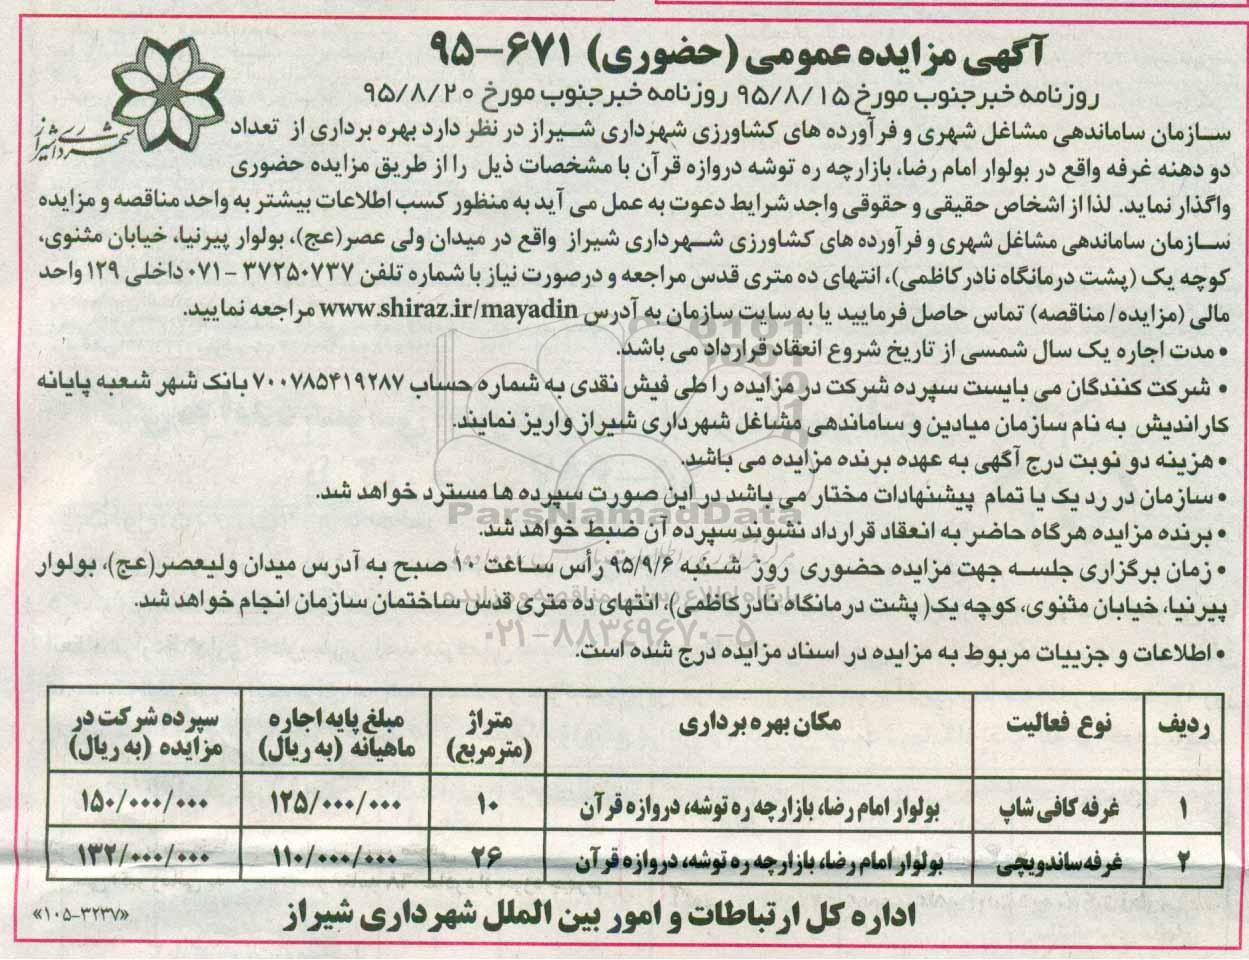 آگهی مزایده عمومی (حضوری) ۶۷۱-۹۵
روزنامه خبرجنوب مورخ ۹۵/۸/۱۵ روزنامه خبرجنوب مورخ ۹۵/۸/۲۰
شهرداری شیراز
سازمان ساماندهی مشاغل شهری و فرآورده های کشاورزی شهرداری شیراز در نظر دارد بهره برداری از تعداد
دو دهنه غرفه واقع در بولوار امام رضا، بازارچه ره توشه دروازه قرآن با مشخصات ذیل را از طریق مزایده حضوری
واگذار نماید. لذا از اشخاص حقیقی و حقوقی واجد شرایط دعوت به عمل می آید به منظور کسب اطلاعات بیشتر به واحد مناقصه و مزایده
سازمان ساماندهی مشاغل شهری و فرآورده های کشاورزی شهرداری شیراز واقع در میدان ولی عصر(عج)، بولوار پیرنیا، خیابان مثنوی،
کوچه یک (پشت درمانگاه نادرکاظمی)، انتهای ده متری قدس مراجعه و درصورت نیاز با شماره تلفن ۳۷۲۵۰۷۳۷ -۰۷۱ داخلی ۱۲۹ واحد
مالی (مزایده/ مناقصه) تماس حاصل فرمایید یا به سایت سازمان به آدرس www.shiraz.ir/mayadin مراجعه نمایید.
• مدت اجاره یک سال شمسی از تاریخ شروع انعقاد قرارداد می باشد.
• شرکت کنندگان می بایست سپرده شرکت در مزایده را طی فیش نقدی به شماره حساب ۷۰۰۷۸۵۴۱۹۲۸۷ بانک شهر شعبه پایانه
کاراندیش به نام سازمان میادین و ساماندهی مشاغل شهرداری شیراز واریز نمایند.
• هزینه دو نوبت درج آگهی به عهده برنده مزایده می باشد.
• سازمان در رد یک یا تمام پیشنهادات مختار می باشد در این صورت سپرده ها مسترد خواهد شد.
ParsNamadData
• برنده مزایده هرگاه حاضر به انعقاد قرارداد نشوند سپرده آن ضبط خواهد شد.
• زمان برگزاری جلسه جهت مزایده حضوری روز شنبه ۹۵/۹/۶ رأس ساعت ۱۰ صبح به آدرس میدان ولیعصر(عج)، بولوار
پیرنیا، خیابان مثنوی، کوچه یک( پشت درمانگاه نادرکاظمی)، انتهای ده متری قدس ساختمان سازمان انجام خواهد شد.
۰۲۱-۸۸۳۴۹۶۷۰-۵
• اطلاعات و جزییات مربوط به مزایده در اسناد مزایده درج شده است.
ردیف نوع فعالیت مکان بهره برداری متراژ (مترمربع) مبلغ پایه اجاره ماهیانه (به ریال) سپرده شرکت در مزایده (به ریال)
۱ غرفه کافی شاپ بولوار امام رضا، بازارچه ره توشه، دروازه قرآن ۱۰ ۱۲۵/۰۰۰/۰۰۰ ۱۵۰/۰۰۰/۰۰۰
۲ غرفه ساندویچی بولوار امام رضا، بازارچه ره توشه، دروازه قرآن ۲۶ ۱۱۰/۰۰۰/۰۰۰ ۱۳۲/۰۰۰/۰۰۰
اداره کل ارتباطات و امور بین الملل شهرداری شیراز
«۱۰۵-۳۲۳۷»